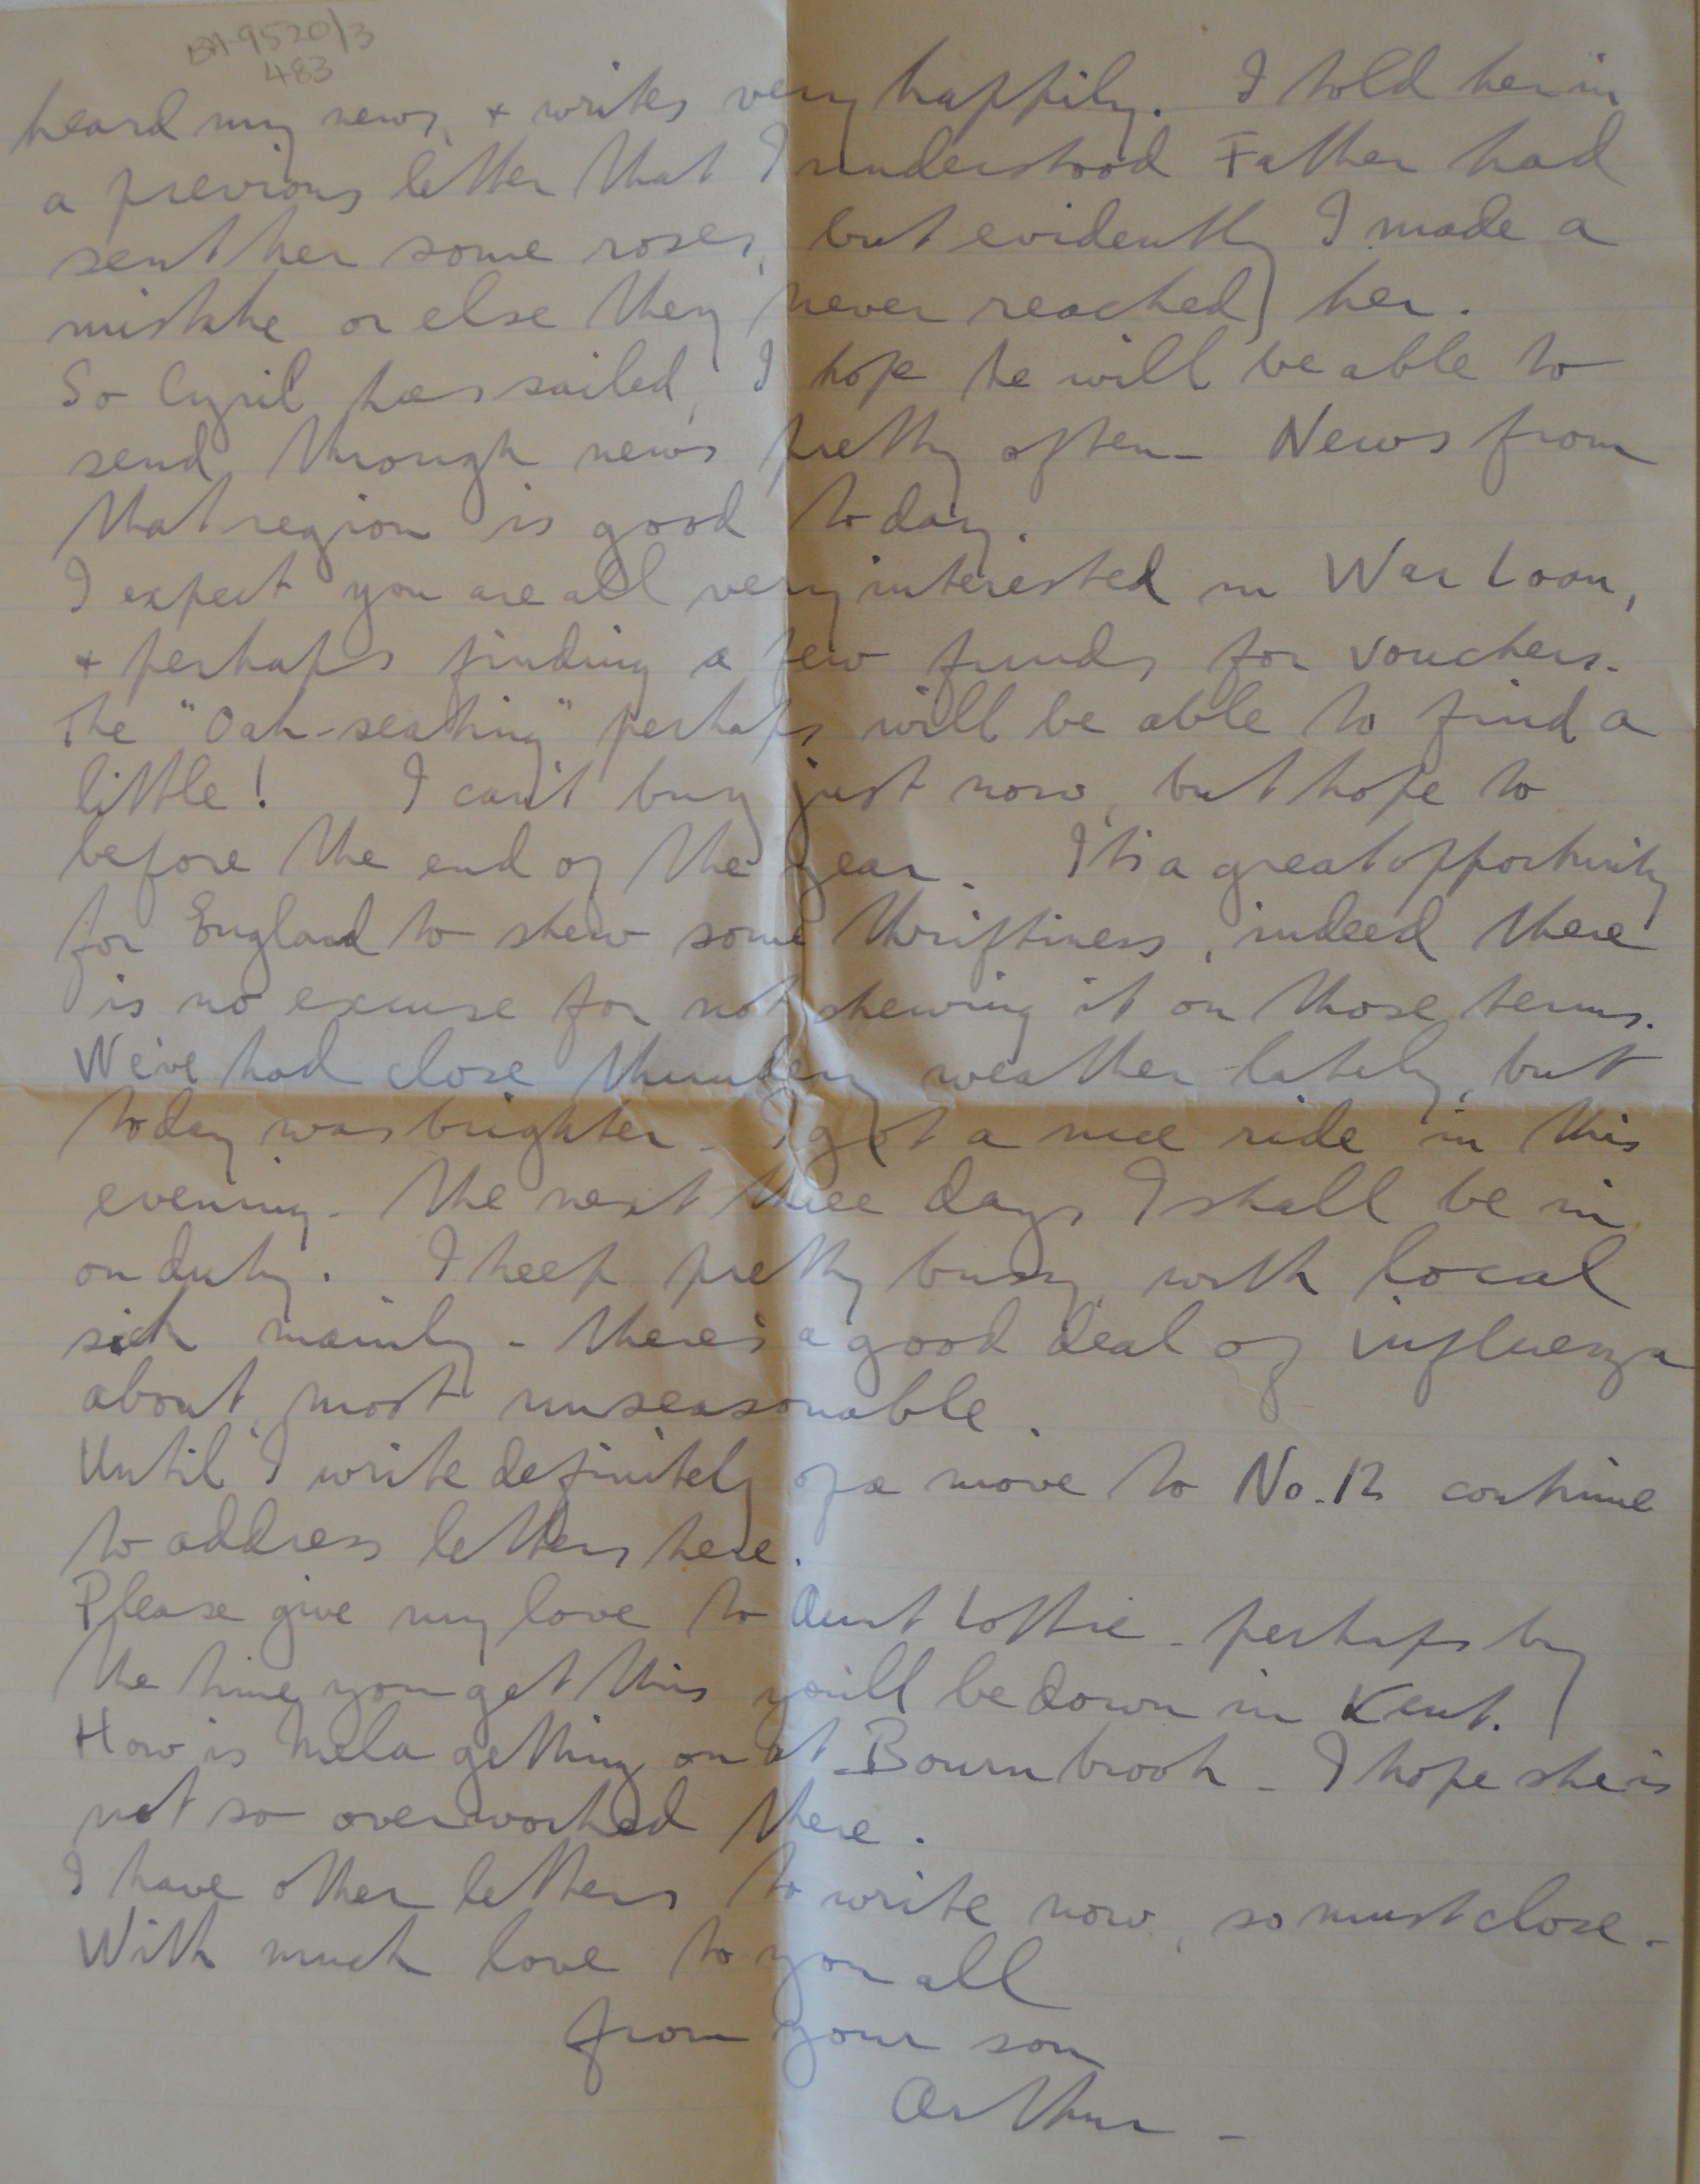 BA 9520/3
483
heard my news, + writes very happily. I told her in
a previous letter that I understood Father had
sent her some roses, but evidently I made a
mistake or else they never reached her.
So Cyril has sailed, I hope he will be able to
send through news pretty often – News from
that region is good today.
I expect you are all very interested in War Loan,
+ perhaps finding a few funds for vouchers.
The "Oak-seating" perhaps will be able to find a
little! I can't buy just now, but hope to
before the end of the year. It's a great opportunity
for England to shew some thriftiness, indeed there
is no excuse for not shewing it on those terms.
We've had close thundery weather lately, but
today was brighter – I got a nice ride in this
evening. The next three days I shall be in
on duty. I keep pretty busy with local
sick mainly – there's a good deal of influenza
about, most unseasonable.
Until I write definitely of a move to No. 12 continue
to address letters here.
Please give my love to Aunt Lottie – perhaps by
the time you get this you'll be down in Kent.
How is Mela getting on at Bournbrook – I hope she is
not so overworked there.
I have other letters to write now, so must close –
With much love to you all
from your son
Arthur –